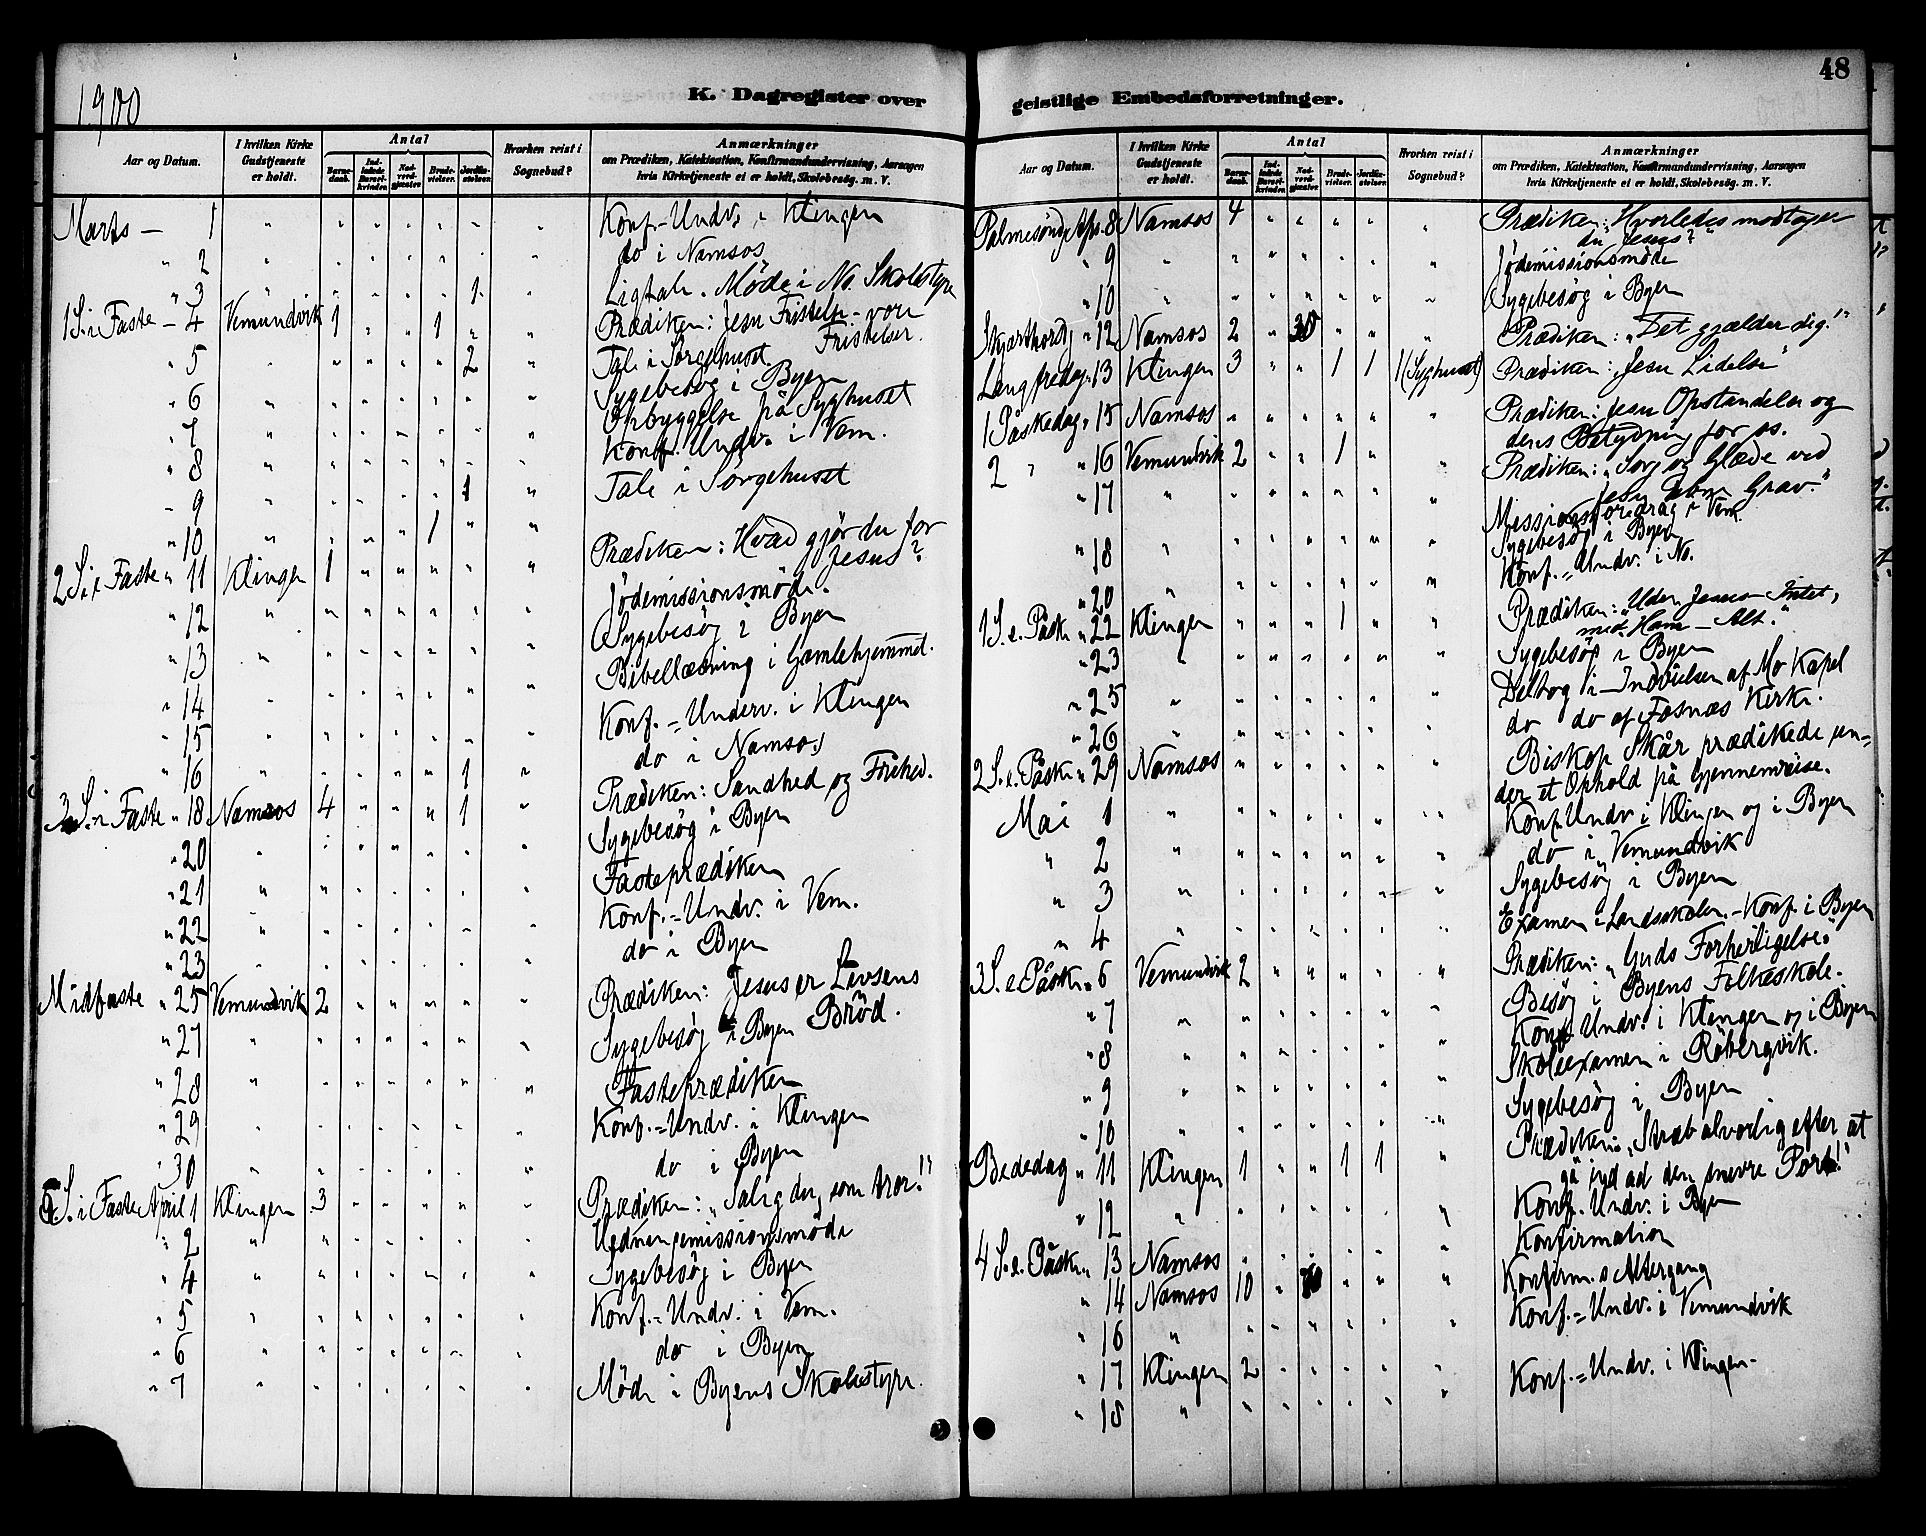 1900
K. Dagregister over
Aar og Datum. I hvilken Kirke Gudstjeneste er holdt. Antal Barnedaab. Indledede Barselkvinder. Nadverdgjæster. Brudevielser. Jordfæstelser. Hvorhen reist i Sognebud? Anmærkninger om Prædiken, Katekisation, Konfirmandundervisning, Aarsagen hvis Kirketjeneste ei er holdt, Skolebesøg. m. V.
Marts — 1 " " " " " " " Konf.-Undv. i Klingen
" 2 " " " " " " " do i Namsos
" 3 " " " " " 1 " Ligtale. Møde i Ns. Skolestyre
1 S. i Faste — 4 Vemundvik 1 " " 1 " " Prædiken: Jesu Fristelse – vore Fristelser.
" 5 " " " " " 2 " Tale i Sørgehuset
" 6 " " " " " " " Sygebesøg i Byen
" 7 " " " " " " " Opbyggelse på Syghuset
" 8 " " " " " " " Konf. Undv. i Vem.
" 9 " " " " " 1 " Tale i Sørgehuset
" 10 " " " " 1 " "
2 S. i Faste " 11 Klingen 1 " " " " " Prædiken: Hvad gjør du for Jesus?
" 12 " " " " " " " Jødemissionsmøde.
" 13 " " " " " " " Sygebesøg i Byen
" 14 " " " " " " " Bibellæsning i Gamlehjemmet.
" 15 " " " " " " " Konf.-Underv. i Klingen
" 16 " " " " " 1 " do i Namsos
3 S. i Faste " 18 Namsos 4 " " " 1 " Prædiken: Sandhed og Frihed.
" 20 " " " " " " " Sygebesøg i Byen
" 21 " " " " " " " Fasteprædiken
" 22 " " " " " " " Konf.-Undv. i Vem.
" 23 " " " " " " " do i Byen
Midfaste " 25 Vemundvik 2 " " " " " Prædiken: Jesus er Livsens Brød.
" 27 " " " " " " " Sygebesøg i Byen
" 28 " " " " " " " Fasteprædiken
" 29 " " " " " " " Konf.-Undv. i Klingen
" 30 " " " " " " " do i Byen
5 S. i Faste April 1 Klingen 3 " " " " " Prædiken: "Salig du, som tror!"
" 2 " " " " " " " Hedningemissionsmøde
" 4 " " " " " " " Sygebesøg i Byen
" 5 " " " " " " " Konf.-Undv. i Vem.
" 6 " " " " " " " do i Byen
" 7 " " " " " " " Møde i Byens Skolestyre.
48
geistlige Embedsforretninger.
Aar og Datum. I hvilken Kirke Gudstjeneste er holdt. Antal Barnedaab. Indledede Barselkvinder. Nadverdgjæster. Brudevielser. Jordfæstelser. Hvorhen reist i Sognebud? Anmærkninger om Prædiken, Katekisation, Konfirmandundervisning, Aarsagen hvis Kirketjeneste ei er holdt, Skolebesøg. m. V.
Palmesønd. Apr. 8 Namsos 4 " " " " " Prædiken: "Hvorledes modtager du Jesus?"
" 9 " " " " " " " Jødemissionsmøde
" 10 " " " " " " " Sygebesøg i Byen
Skjærthorsd. " 12 Namsos 2 " 30 " " " Prædiken: "Det gjælder dig!"
Langfredag " 13 Klingen 3 " " 1 1 1 (Syghuset) Prædiken: "Jesu Lidelse"
1 Påskedag " 15 Namsos " " " " " " Prædiken: Jesu Opstandelse og dens Betydning for os.
2 " " 16 Vemundvik 2 " " 1 " " Prædiken: "Sorg og Glæde ved Jesu Grav."
" 17 " " " " " " " Missionsforedrag i Vem.
" 18 " " " " " " " Sygebesøg i Byen
" 20 " " " " " " " Konf.-Undv. i Ns.
1 S. e. Påske " 22 Klingen " " " 1 " " Prædiken: "Uden Jesus – Intet, med Ham – Alt."
" 23 " " " " " " " Sygebesøg i Byen
" 25 " " " " " " " Deltog i Indvielsen af Mo Kapel
" 26 " " " " " " " do do af Fosnæs Kirke.
2 S. e. Påske " 29 Namsos " " " " " " Biskop Skår prædikede under et Ophold på Gjennemreise.
Mai 1 " " " " " " " Konf. Undv. i Klingen og i Byen
" 2 " " " " " " " do i Vemundvik
" 3 " " " " " " " Sygebesøg i Byen
" 4 " " " " " " " Examen i Landsskolen. – Konf. i Byen
3 S. e. Påske " 6 Vemundvik 2 " " " " " Prædiken: "Guds Forherligelse."
" 7 " " " " " " " Besøg i Byens Folkeskole.
" 8 " " " " " " " Konf. Undv. i Klingen og i Byen
" 9 " " " " " " " Skoleexamen i Råbergvik.
" 10 " " " " " " " Sygebesøg i Byen
Bededag " 11 Klingen 1 " " 1 1 " Prædiken: "Stræb alvorlig efter at gå ind ad den snevre Port!"
" 12 " " " " " " " Konf. Undv. i Byen
4 S. e. Påske " 13 Namsos " " " " " " Konfirmation
" 14 Namsos 10 " 70 " " " Konfirm.s Altergang
" 16 " " " " " " " Konf.-Undv. i Vemundvik
" 17 Klingen 2 " " " " "
" 18 " " " " " " " Konf.-Undv. i Klingen.